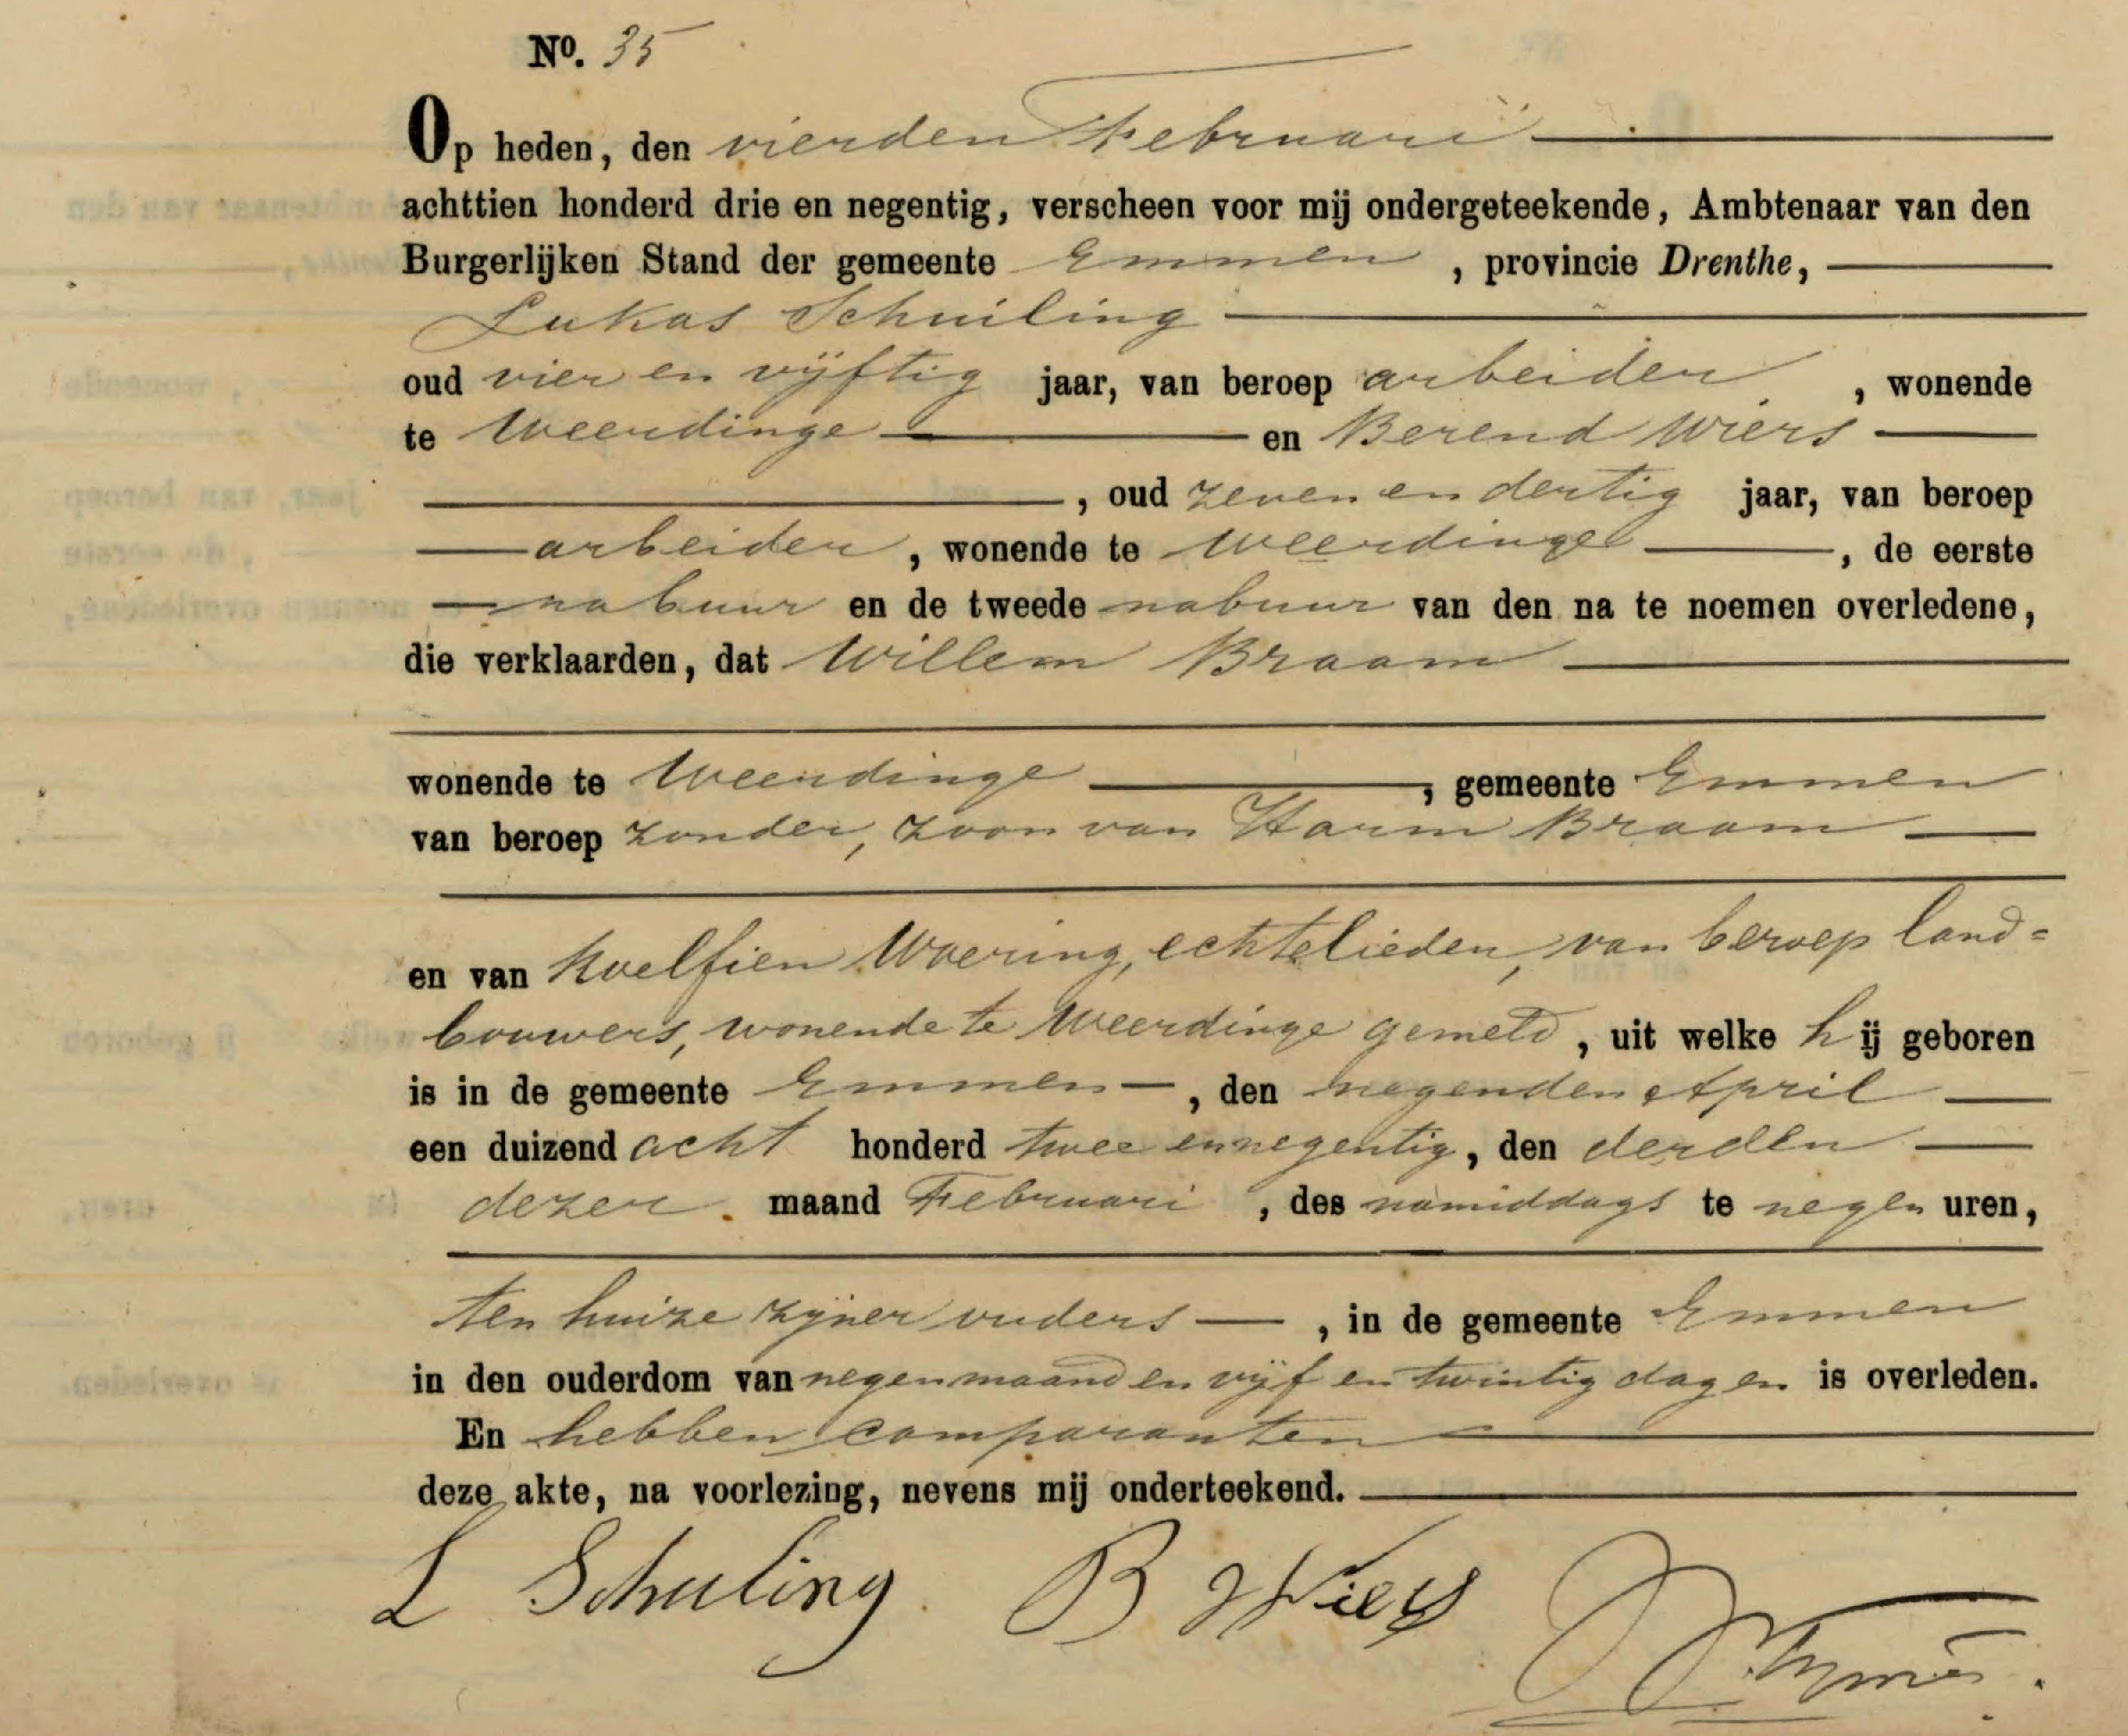 No. 35
Op heden, den vierden Februari
achttien honderd drie en negentig, verscheen voor mij ondergeteekende, Ambtenaar van den
Burgerlijken Stand der gemeente Emmen, provincie Drenthe,
Lukas Schuiling
oud vier en vijftig jaar, van beroep arbeider, wonende
te Weerdinge en Berend Wiers
, oud zeven en dertig jaar, van beroep
arbeider, wonende te Weerdinge, de eerste
nabuur en de tweede nabuur van den na te noemen overledene,
die verklaarden, dat Willem Braam
wonende te Weerdinge, gemeente Emmen
van beroep zonder, zoon van Harm Braam
en van Roelfien Woering, echtelieden, van beroep land=
bouwers, wonende te Weerdinge gemeld, uit welke hij geboren
is in de gemeente Emmen, den negenden April
een duizend acht honderd twee en negentig, den derden
dezer maand Februari, des namiddags te negen uren,
ten huize zijner ouders, in de gemeente Emmen
in den ouderdom van negen maand en vijf en twintig dagen is overleden.
En hebben comparanten
deze akte, na voorlezing, nevens mij onderteekend.
L Schuling B Wiers